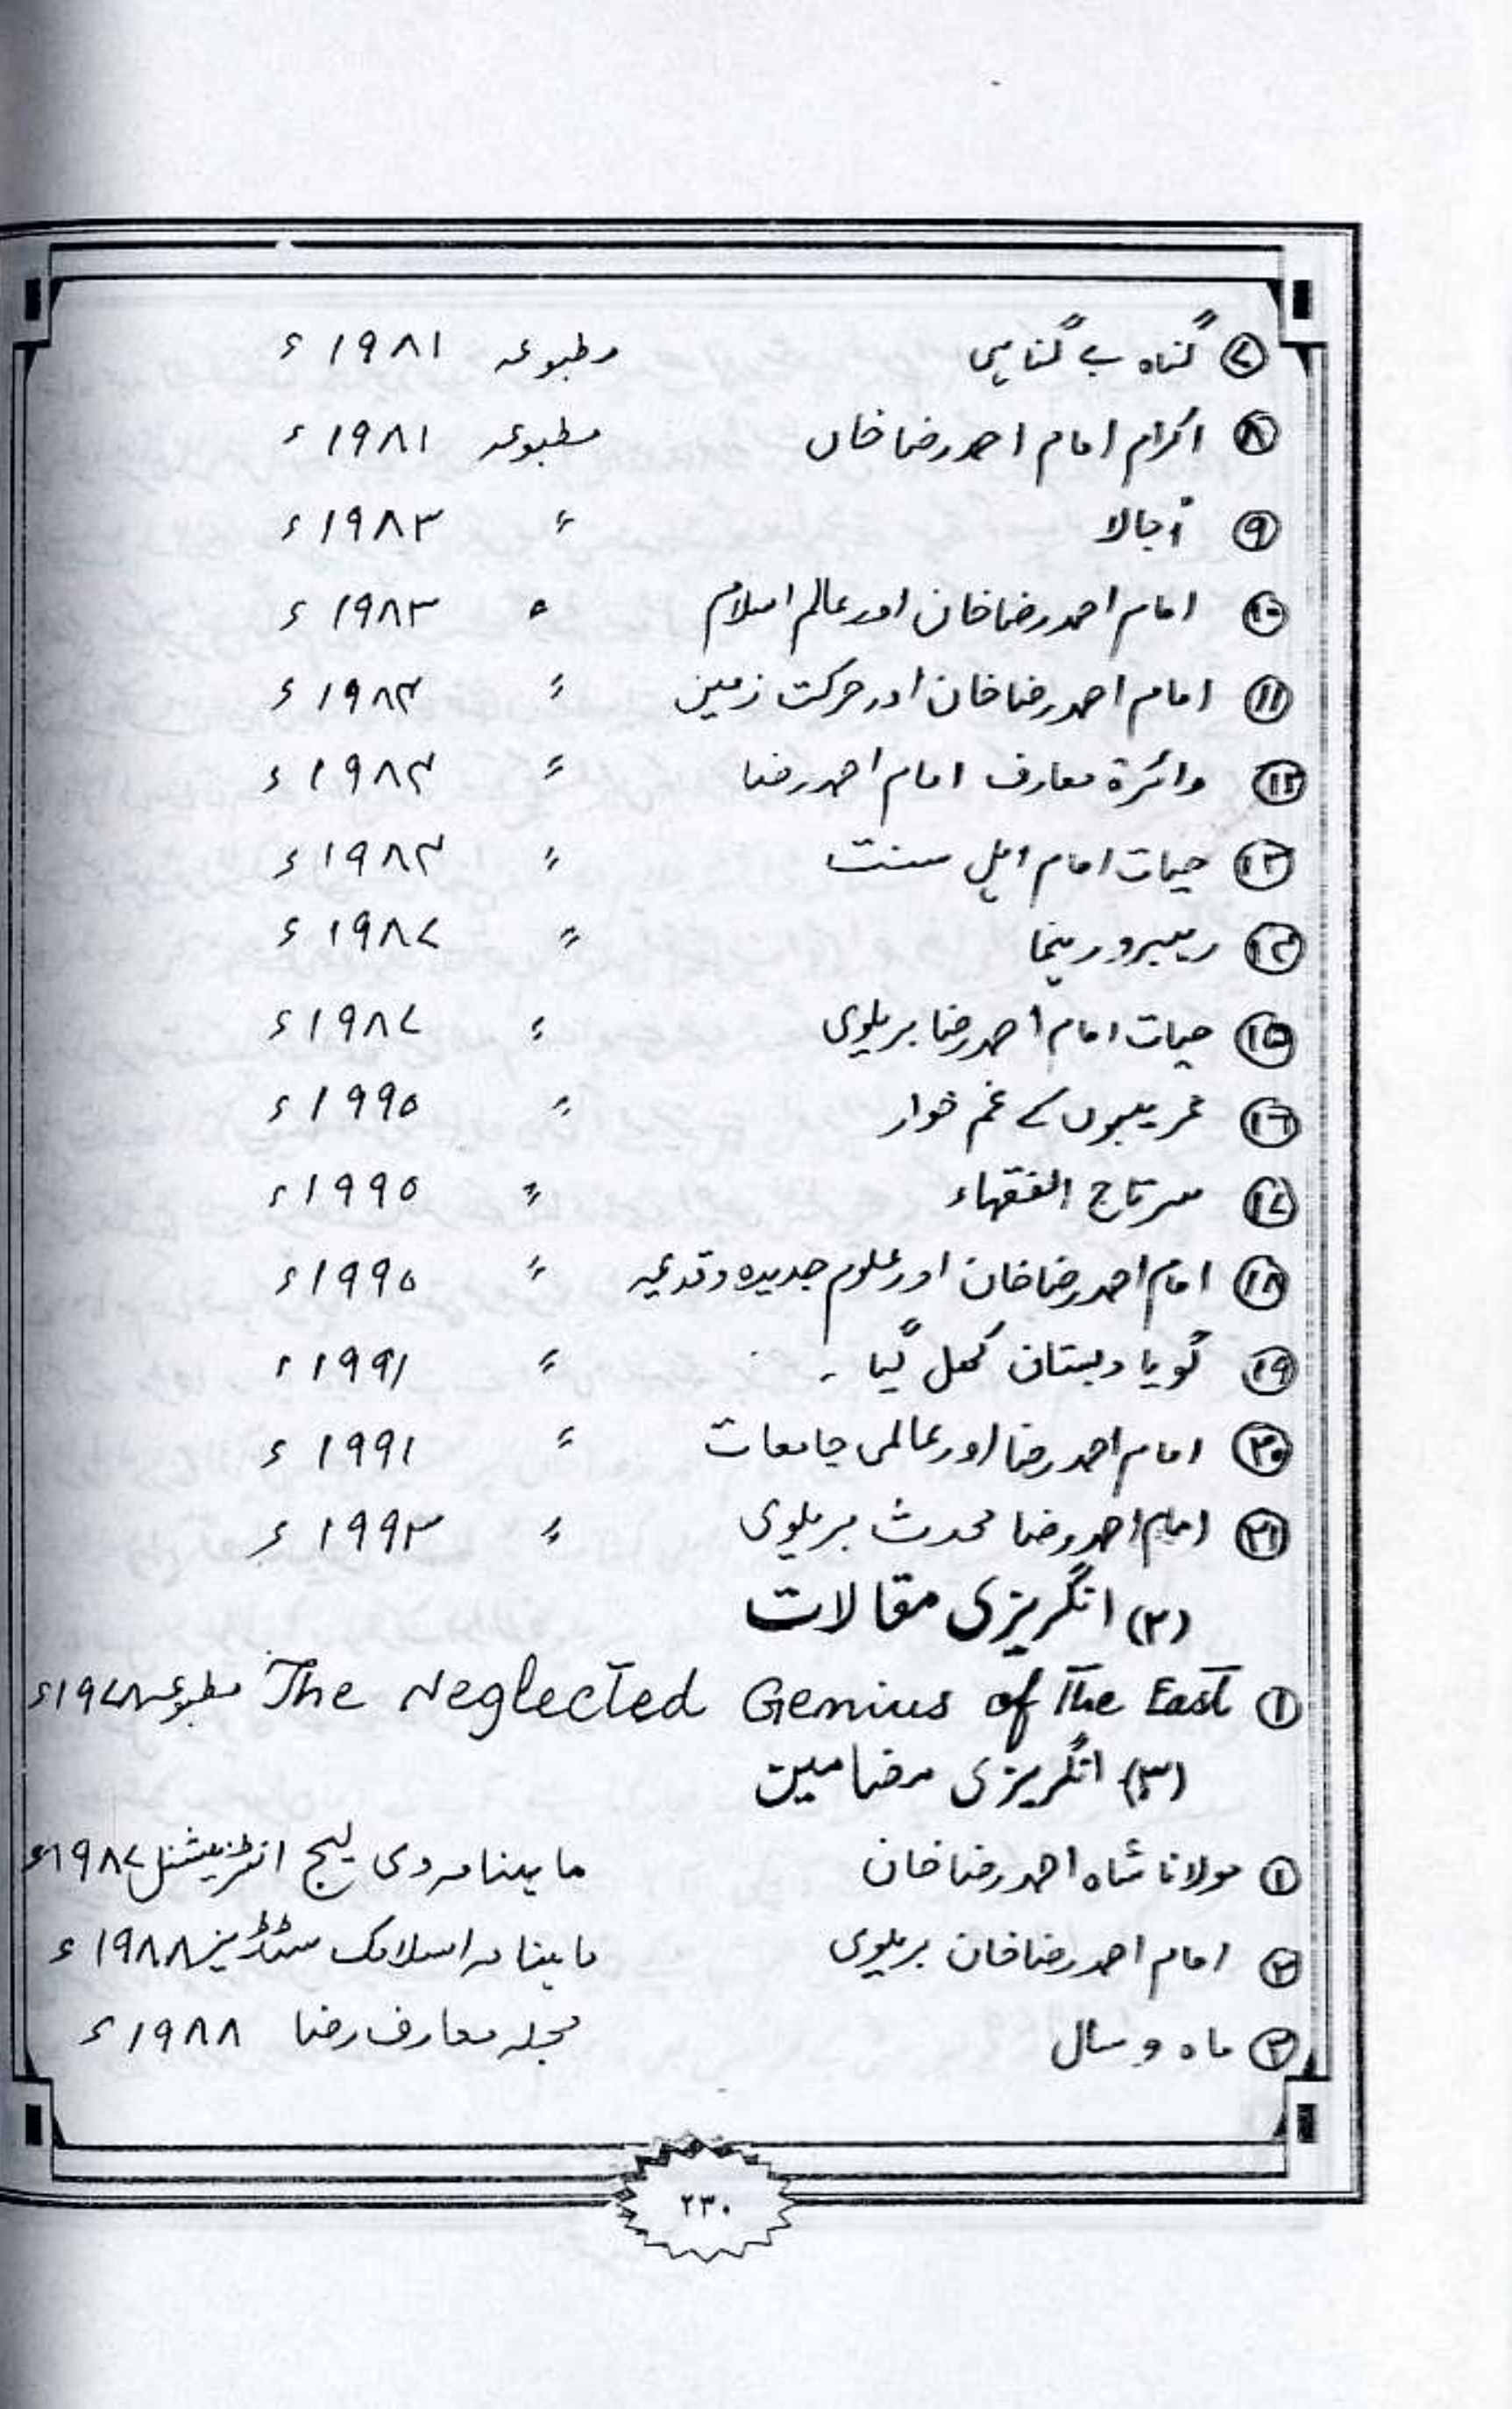 ۷ گناہ بے گناہی مطبوعہ ۱۹۸۱ء
۸ اکرام امام احمد رضا خاں مطبوعہ ۱۹۸۱ء
۹ اُجالا 〃 ۱۹۸۳ء
۱۰ امام احمد رضا خان اور عالم اسلام 〃 ۱۹۸۳ء
۱۱ امام احمد رضا خان اور حرکت زمین 〃 ۱۹۸۴ء
۱۲ دائرۃ معارف امام احمد رضا 〃 ۱۹۸۴ء
۱۳ حیات امام اہل سنت 〃 ۱۹۸۴ء
۱۴ رہبر و رہنما 〃 ۱۹۸۷ء
۱۵ حیات امام احمد رضا بریلوی 〃 ۱۹۸۷ء
۱۶ غریبوں کے غم خوار 〃 ۱۹۹۰ء
۱۷ سرتاج الفقہاء 〃 ۱۹۹۰ء
۱۸ امام احمد رضا خان اور علوم جدیدہ و قدیمہ 〃 ۱۹۹۰ء
۱۹ گویا دبستان کھل گیا ۔ 〃 ۱۹۹۱ء
۲۰ امام احمد رضا اور عالمی جامعات 〃 ۱۹۹۱ء
۲۱ امام احمد رضا محدث بریلوی 〃 ۱۹۹۳ء
(۲) انگریزی مقالات
۱ The Neglected Genius of The East مطبوعہ ۱۹۷۸ء
(۳) انگریزی مضامین
۱ مولانا شاہ احمد رضا خان ماہنامہ دی لیج انٹرنیشنل ۱۹۸۷ء
۲ امام احمد رضا خان بریلوی ماہنامہ اسلامک سٹڈیز ۱۹۸۸ء
۳ ماہ و سال مجلہ معارف رضا ۱۹۸۸ء
۲۳۰